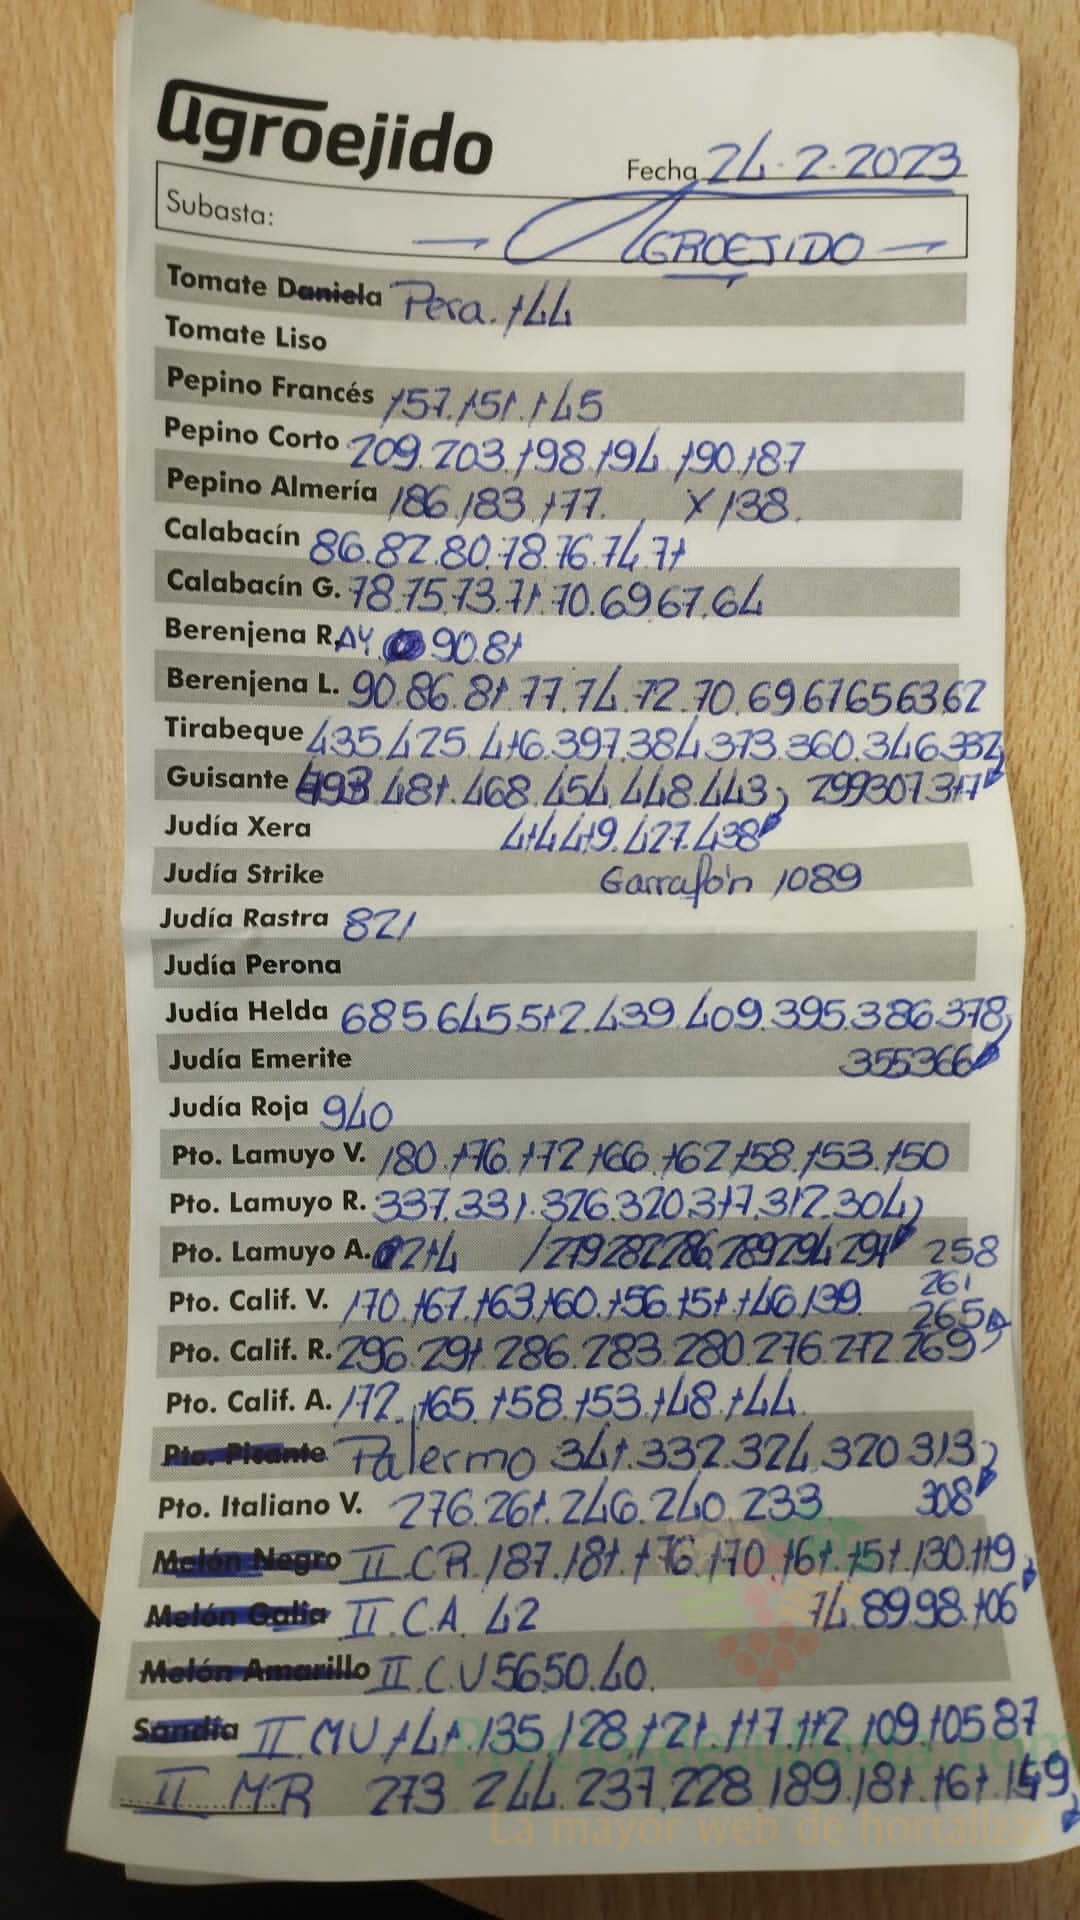 agroejido
Fecha 24.2.2023
Subasta: — AGROEJIDO —
Tomate Daniela Pera. 144
Tomate Liso
Pepino Francés 157.151.145
Pepino Corto 209.203.198.194.190.187
Pepino Almería 186.183.177. X 138.
Calabacín 86.82.80.78.76.74.71
Calabacín G. 78.75.73.71.70.69.67.64
Berenjena R. AY. 90.81
Berenjena L. 90.86.81.77.74.72.70.69 67 65 63 62
Tirabeque 435.425.416.397.384.373.360.346.332
Guisante 493.481.468.454.448.443 299 307.317
Judía Xera 414.419.427.438
Judía Strike Garrafón 1089
Judía Rastra 821
Judía Perona
Judía Helda 685 645 512.439.409.395.386.378
Judía Emerite 355 366
Judía Roja 940
Pto. Lamuyo V. 180.176.172 166.162 158.153.150
Pto. Lamuyo R. 337.331.326.320.317.312.304
Pto. Lamuyo A. 214 / 279 282 286.289 294 297 258
261
Pto. Calif. V. 170.167.163.160.156.151.146.139. 265
Pto. Calif. R. 296 291 286.283.280.276.272.269
Pto. Calif. A. 172.165.158.153.148.144.
Pto. Picante Palermo 341.332.324.320 313
Pto. Italiano V. 276.261.246.240.233 308
Melón Negro II.CR.187.181.176.170.161.151.130.119
Melón Galia II.C.A. 42 74.89 98.106
Melón Amarillo II.C.V 56 50.40.
Sandía II.MV 141.135.128.121.117.112.109.105 87
II MR 273 244.237.228.189.181.161.149
Preciosdesubasta.com
La mayor web de hortalizas